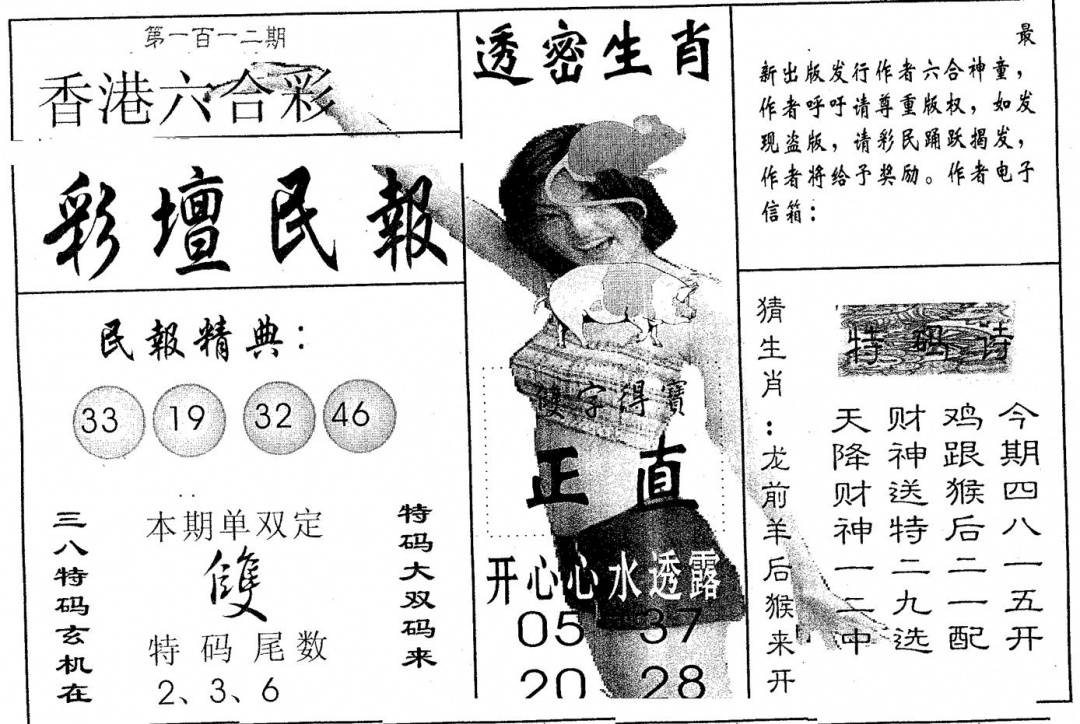 第一百一二期
香港六合彩
彩壇民報
民報精典：
33 19 32 46
三八特码玄机在
本期单双定
雙
特码尾数
2、3、6
特码大双码来
透密生肖
雙字得寶
正直
开心心水透露
05 37
20、28
最
新出版发行作者六合神童，
作者呼吁请尊重版权，如发
现盗版，请彩民踊跃揭发，
作者将给予奖励。作者电子
信箱：
猜生肖：龙前羊后猴来开
特码诗
今期四八一五开
鸡跟猴后二一配
财神送特二九选
天降财神一二中